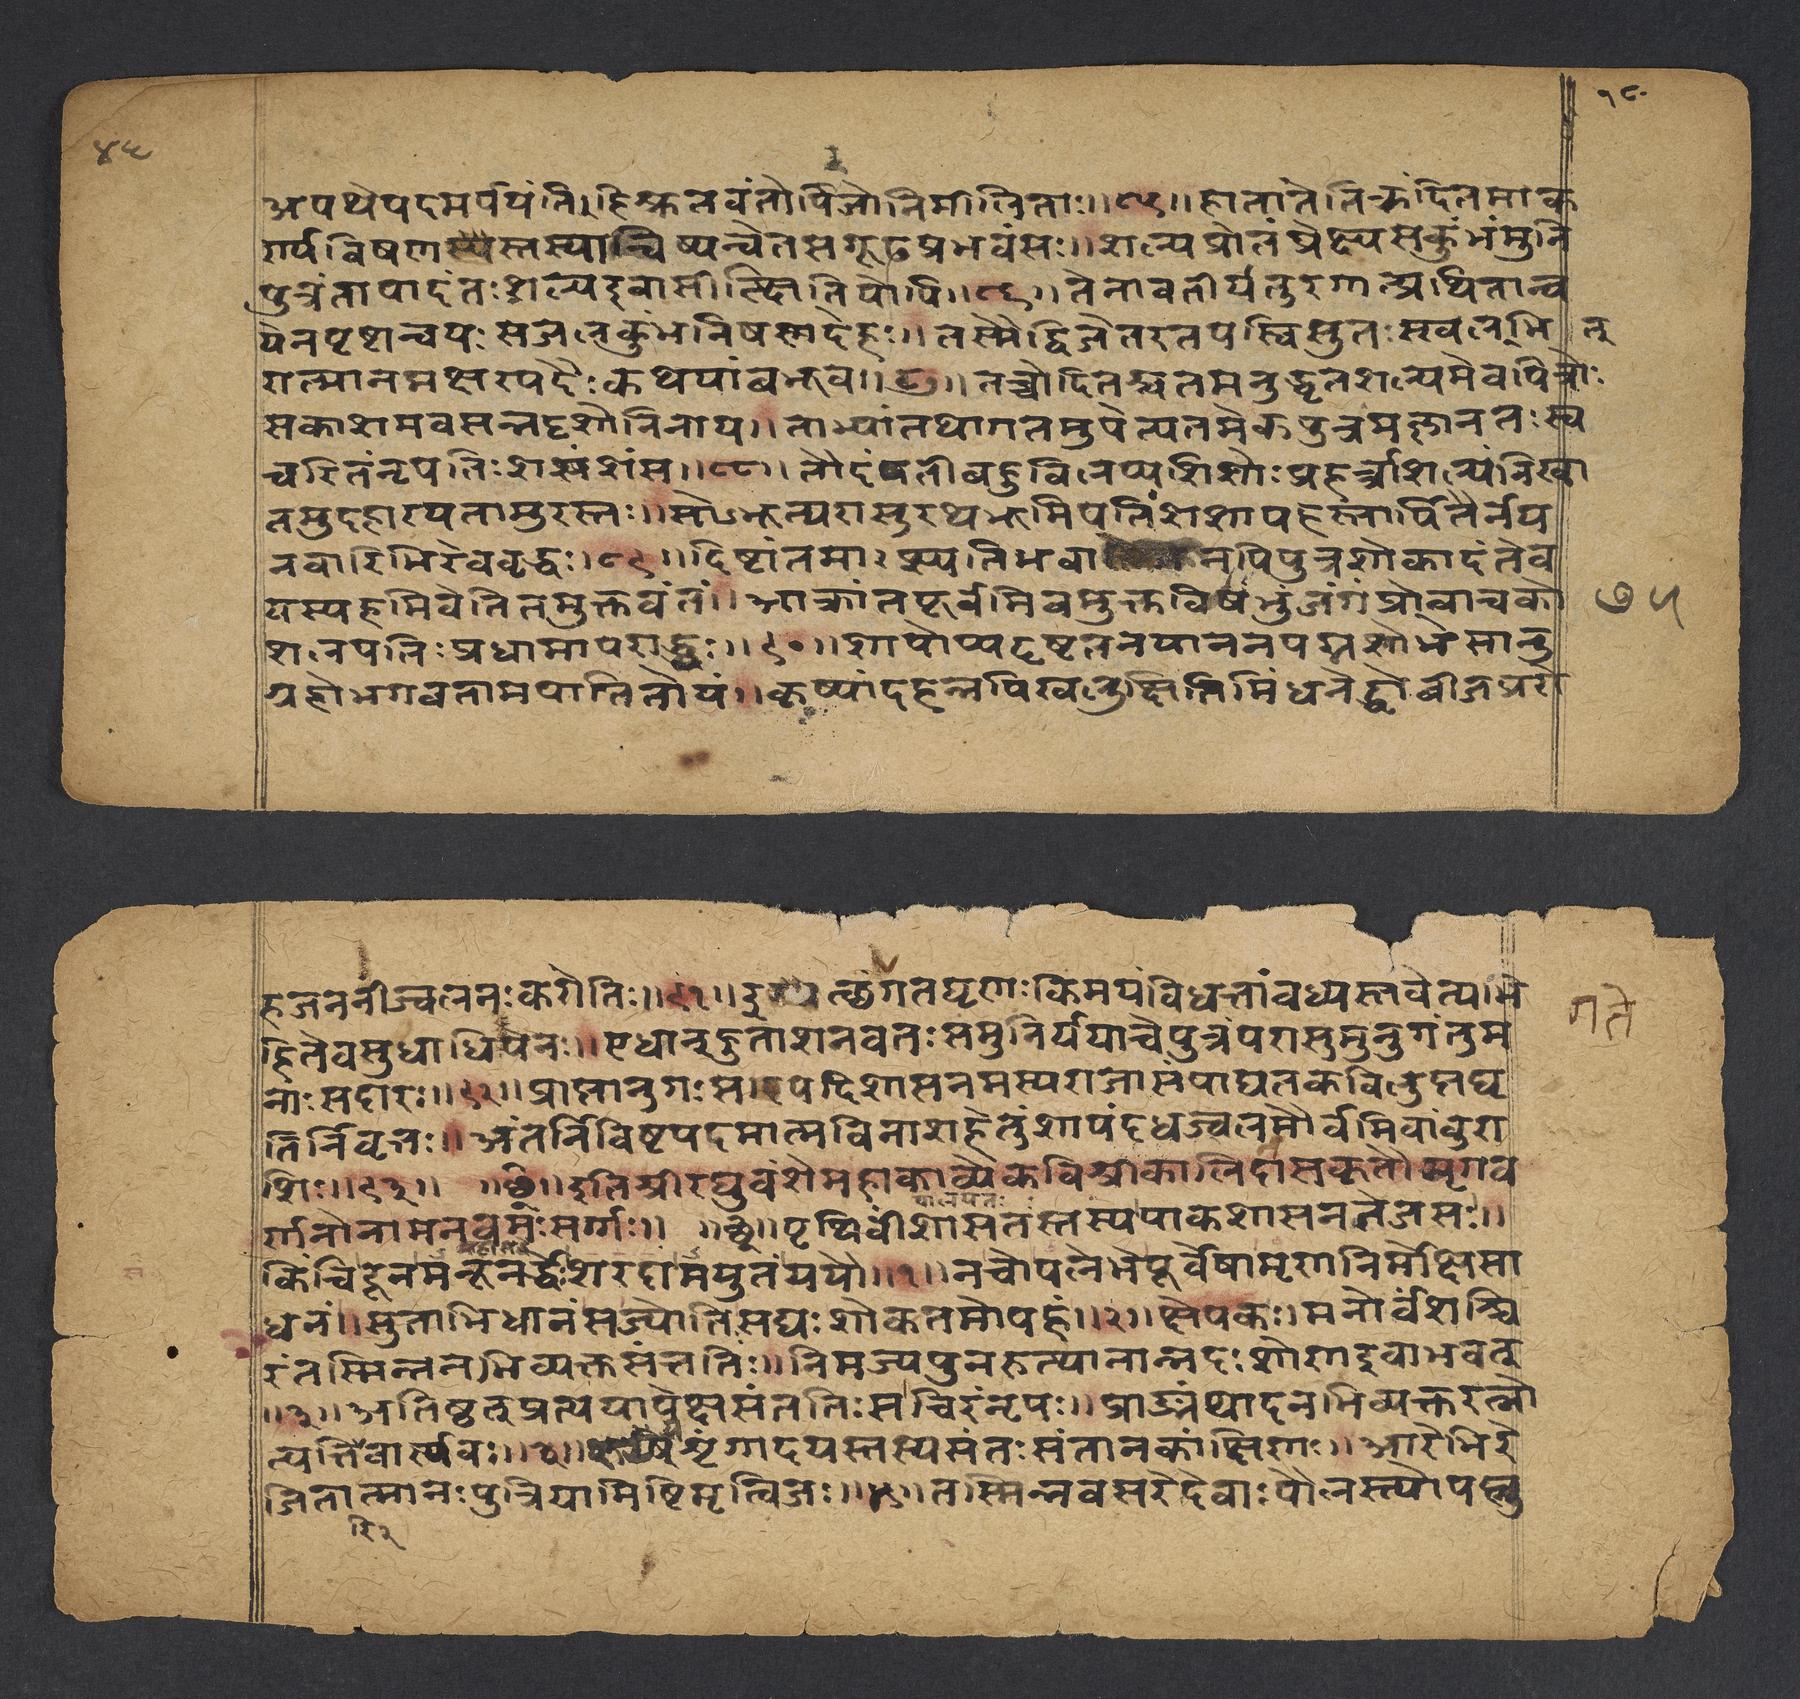 १८
४५
अपथेपदमर्पयंति।हिश्रुतवंतोपिरजोनिमीलिताः॥८५॥हातातेतिक्रंदितमाक
र्ण्यविषणस्तस्यान्विष्यन्वेतसगूढप्रभवंसः॥शल्यप्रोतंप्रेक्ष्यसकुंभंमुनि
पुत्रंतापादंतःशल्यइवासीत्क्षितिपोपि॥८६॥तेनावतीर्यतुरगात्प्रथितान्व
येनपृष्टान्वयःसजलकुंभनिषण्णदेहः॥तस्मैद्विजेतरतपस्विसुतंस्खलद्भि
रात्मानमक्षरपदैःकथयांबभूव॥८७॥तच्चोदितश्चतमनुद्धृतशल्यमेवपित्रोः
सकाशमवसन्नदृशोर्निनाय॥ताभ्यांतथागतमुपेत्यतमेकपुत्रमज्ञानतःस्व
चरितंनृपतिःशशंस॥८८॥तौदंपतीबहुविलप्यशिशोःप्रहर्त्राशल्यंनिखा
तमुदहारयतामुरस्तः॥सोऽभूत्परासुरथभूमिपतिंशशापहस्तार्पितैर्नय
नवारिभिरेववृद्धः।८९॥दिष्टांतमाप्स्यतिभवा नपिपुत्रशोकादंतेव
यस्यहमिवेतितमुक्तवंतं॥आक्रांतपूर्वमिवमुक्तविषंभुजंगंप्रोवाचको
७५
शलपतिःप्रथमापराद्धः॥९०॥शापोप्यदृष्टतनयाननपद्मशोभेसानु
ग्रहोभगवतामयिपातितोयं॥कृष्यांदहन्नपिखलुक्षितिमिंधनेद्धोबीजप्ररो
हजननींज्वलनःकरोति॥९१॥ त्थंगतघृणःकिमयंविधत्तांवध्यस्तवेत्यभि
गते
हितेवसुधाधिपेन॥एधान्हुताशनवतःसमुनिर्ययाचेपुत्रंपरासुमनुगंतुम
नाःसदारः॥९२॥प्राप्तानुगःसपदिशासनमस्यराजासंपाद्यतकविलुप्तधृ
तिर्निवृत्तः॥अंतर्निविष्टपदमात्मविनाशहेतुंशापंदधज्ज्वलनमौर्वमिवांबुरा
शिः॥९३॥ ॥छ॥इतिश्रीरघुवंशेमहाकाव्येकविश्रीकालिदासकृतौमृगव
र्णनोनामनवमःसर्गः॥ ॥छ॥पृथिवींशासतस्तस्यपाकशासनतेजसः॥
किंचिदूनमनूनर्द्धेःशरदामयुतंययौ॥१॥नचोपलेभेपूर्वेषामृणनिर्मोक्षसा
धनं॥सुताभिधानंसज्योतिसद्यःशोकतमोपहं॥२॥क्षेपकः।मनोर्वंशश्चि
रंतस्मिन्नभिव्यक्तसंततिः॥निमज्यपुनरुत्थानान्नदःशोणइवाभवत्
॥३॥अतिष्ठत्प्रत्ययापेक्षसंततिःसचिरंनृपः॥प्राङ्मंथादनभिव्यक्तरत्नो
त्पत्तिवार्णवः॥४॥ऋष्यशृंगादयस्तस्यसंतःसंतानकांक्षिणः॥आरेभिरे
जितात्मानःपुत्रियामिष्टिमृत्विजः॥५॥तस्मिन्नवसरेदेवाःपौलस्त्योपप्लु